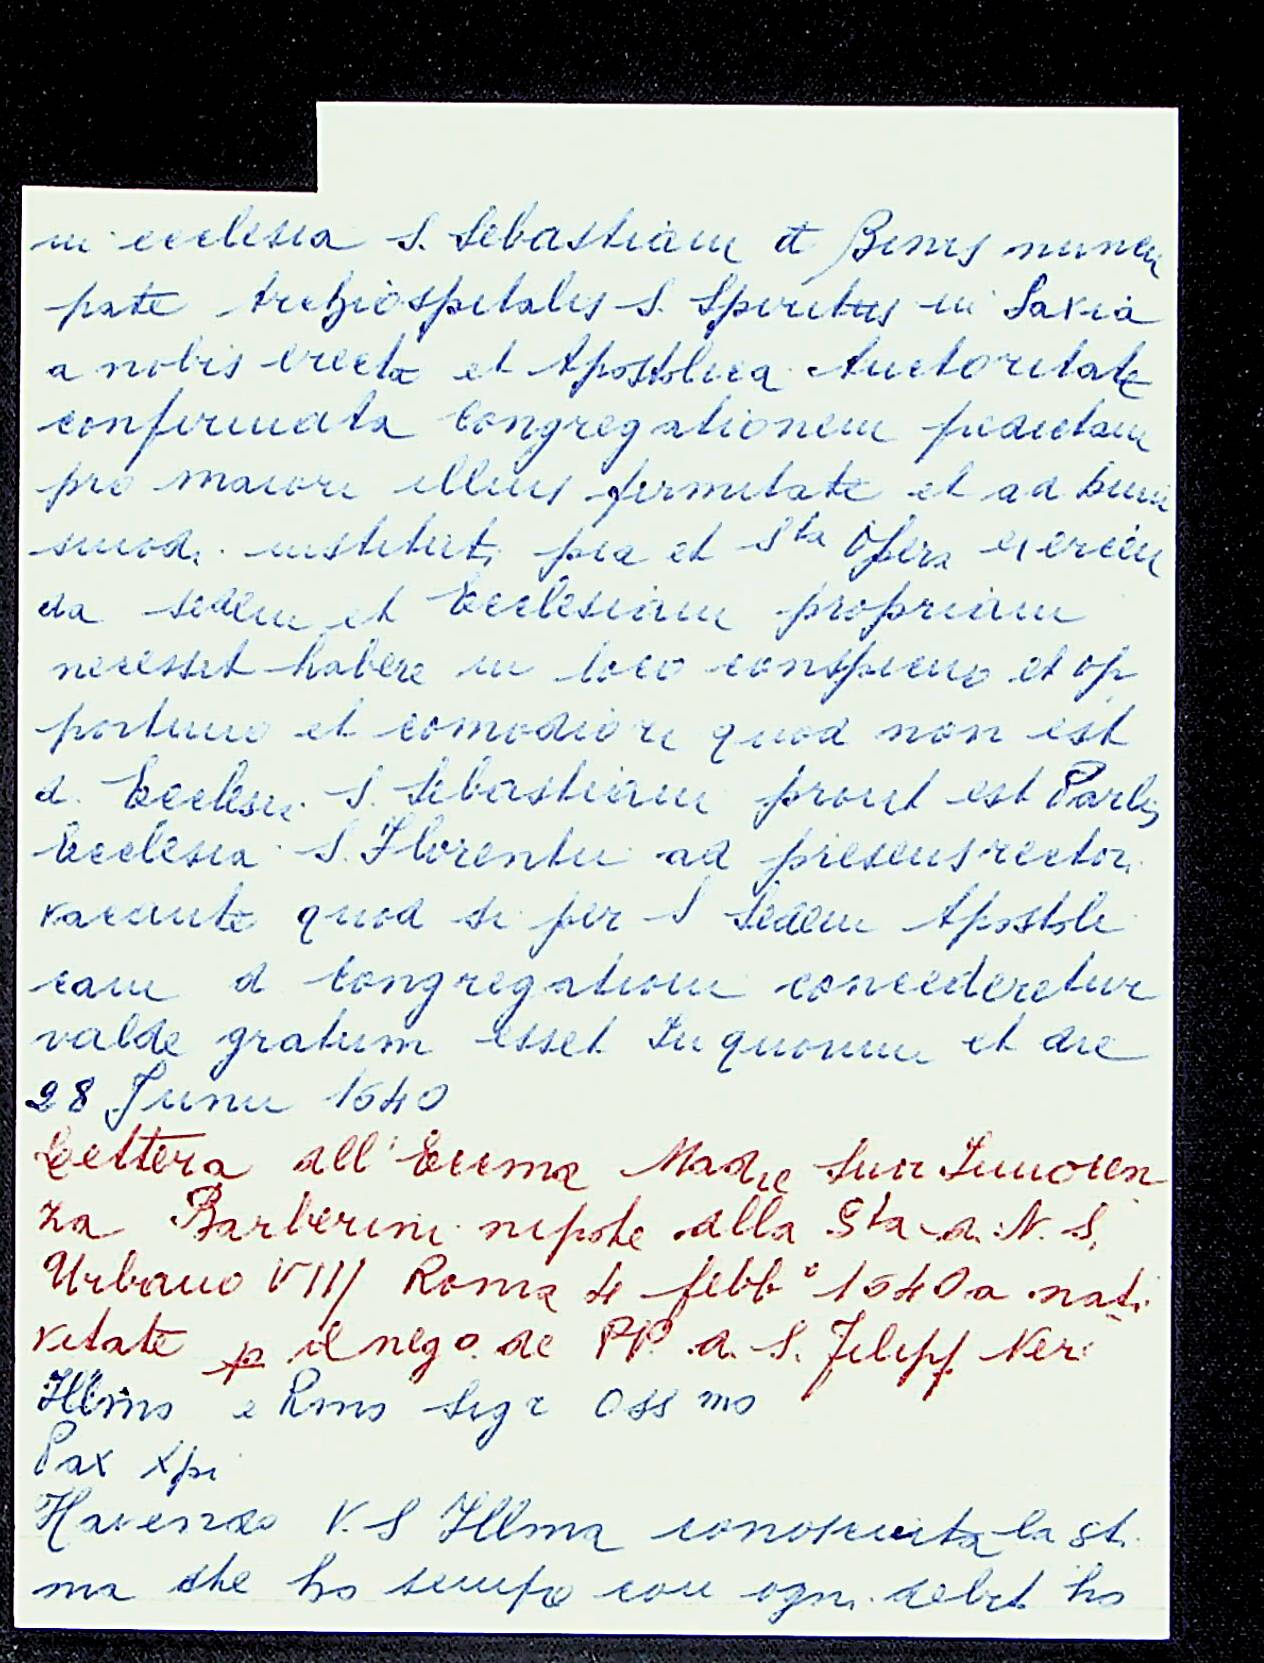 in ecclesia S. Sebastiani et Binis nuncu
pate Archiospitalis S. Spiritus in Saxia
a nobis erecta et Apostolica Auctoritate
confirmata Congregationem predictam
pro maiori illius firmitate et ad huiu
smod. institut. pia et Sta Opera exercen
da sedem et Ecclesiam propriam
necesset habere in loco conspicuo et op
portuno et comodiori quod non est
d. Ecclesi. S. Sebastiani prout est Parlis
Ecclesia S. Florentii ad presens rector.
vacante quod si per S Sedem Apostoli
cam d Congregationi concederetur
valde gratum esset In quorum et die
28 Junii 1640
Lettera all' Eccma Madre Suor Innocen
za Barberini nipote alla Sta d. N. S.
Urbano VIII Roma 4 febb° 1640 a nati
vitate p il nego. de PP. d. S. Filipp Neri
Illmo e Rmo Sigr Oss mo
Pax Xpi
Havendo V. S Illma conosciuta la sti
ma che ho sempre con ogni debit ho